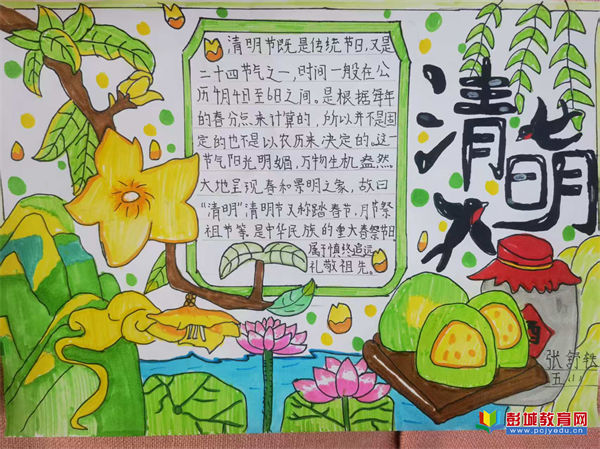 清明节既是传统节日,又是
二十四节气之一,时间一般在公
历4月4日至6日之间。是根据每年
的春分点来计算的,所以并不是固
定的也不是以农历来决定的。这一
节气阳光明媚,万物生机盎然
大地呈现春和景明之象,故曰
“清明”清明节又称踏春节,月节祭
祖节等,是中华民族的重大春祭节日
属于慎终追远、
礼敬祖先。
清明
酒
张舒
五
彭城教育网
www.pcjyedu.cn